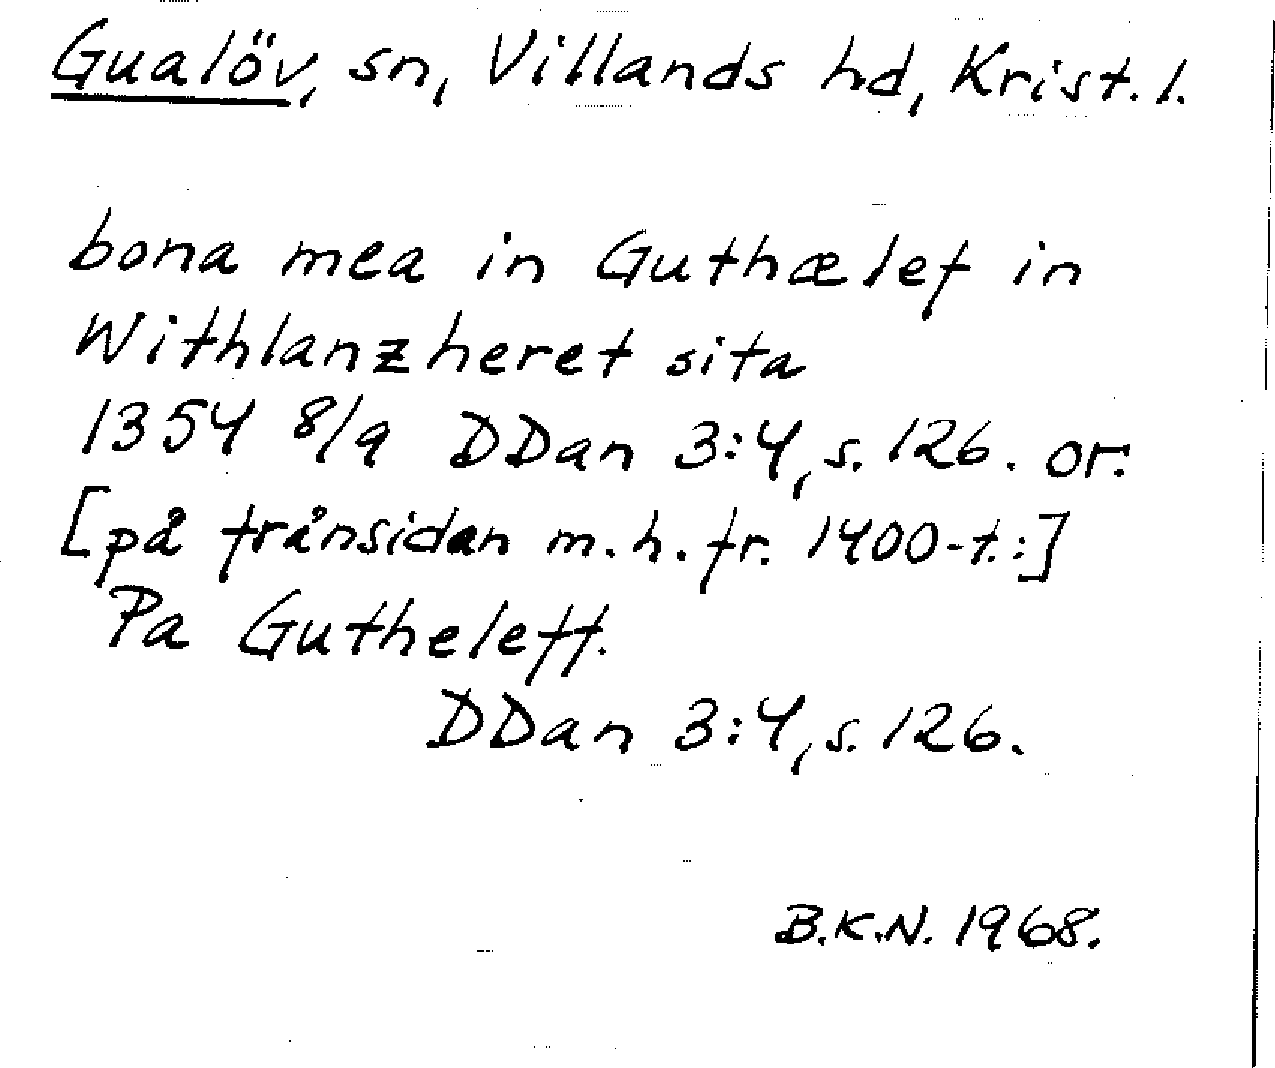 Gualöv, sn, Villands hd, Krist. l.
bona mea in Guthælef in
Withlanzheret sita
1354 8/9 DDan 3:4, s. 126. or.
[på frånsidan m. h. fr. 1400-t.:]
Pa Gutheleff.
DDan 3:4, s. 126.
B.K.N. 1968.